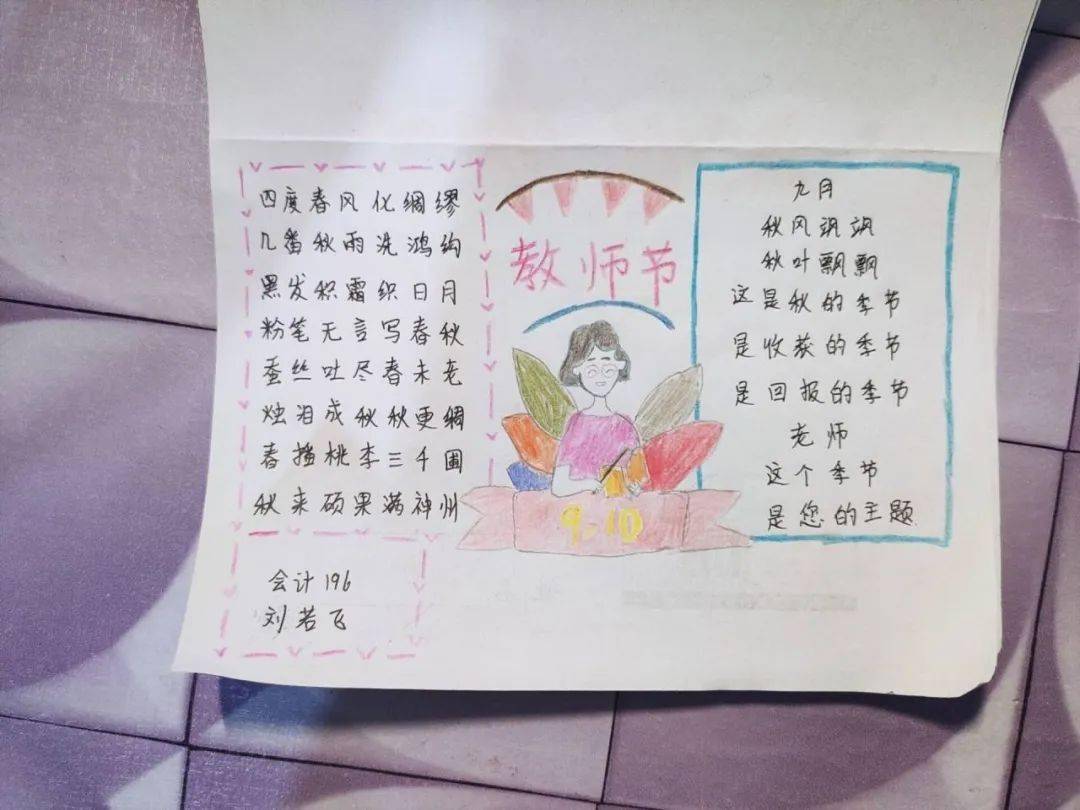 四度春风化绸缪
几番秋雨洗鸿沟
黑发积霜织日月
粉笔无言写春秋
蚕丝吐尽春未老
烛泪成秋秋更绸
春播桃李三千圃
秋来硕果满神州
会计196
刘若飞
教师节
9.10
九月
秋风飒飒
秋叶飘飘
这是秋的季节
是收获的季节
是回报的季节
老师
这个季节
是您的主题